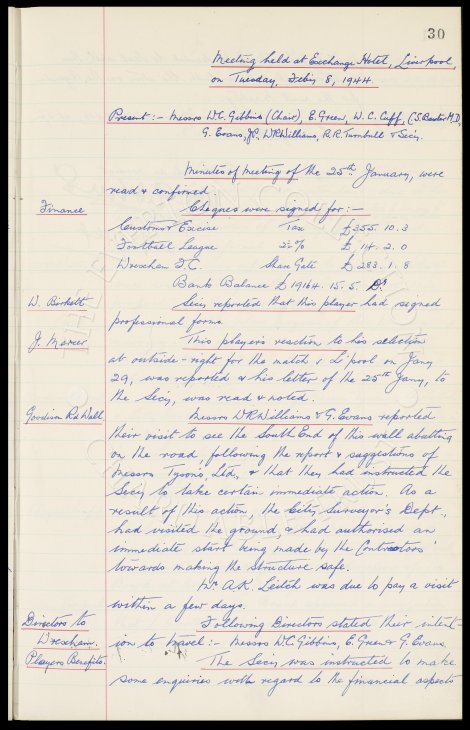 30
Meeting held at Exchange Hotel, Liverpool,
on Tuesday, Feby 8, 1944.
Present:- Messrs W.C. Gibbins (Chair), E. Green, W. C. Cuff, C.S. Baxter M.D,
G. Evans, J.P. W.R. Williams, R.R. Turnbull & Secy.
Minutes of Meeting of the 25th January, were
read & confirmed.
Finance Cheques were signed for:-
Customs & Excise Tax £355. 10. 3
Football League 2% £ 14. 2. 0
Wrexham F.C. Share Gate £ 283. 1. 8
Bank Balance £19164. 15. 5. Dr
W. Birkett Secy reported that this player had signed
professional forms.
J. Mercer This player's reaction to his selection
at outside-right for the match v L'pool on Jany
29, was reported & his letter of the 25th Jany, to
the Secy, was read & noted.
Goodison Rd Wall Messrs W.R. Williams & G. Evans reported
their visit to see the South End of this wall abutting
on the road, following the report & suggestions of
Messrs Tysons, Ltd, & that they had instructed the
Secy to take certain immediate action. As a
result of this action, the City Surveyor's Dept.,
had visited the ground, & had authorised an
immediate start being made by the Contractors
towards making the structure safe.
Mr A.K. Leitch was due to pay a visit
within a few days.
Directors to Following Directors stated their intent-
Wrexham. ion to travel:- Messrs W.C. Gibbins, E. Green & G. Evans
Players Benefits. The Secy was instructed to make
some enquiries with regard to the financial aspects